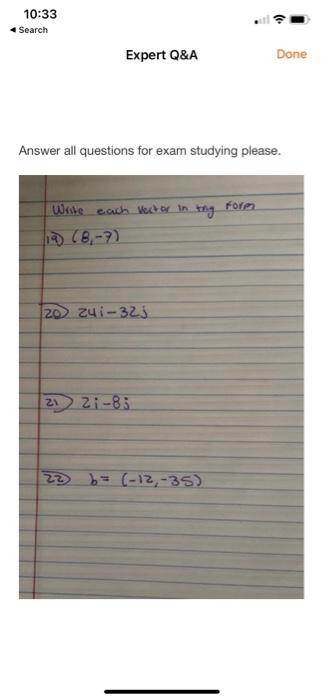 10:33
Search
Expert Q&A
Done
Answer all questions for exam studying please.
Write each Vector in trig form
19) (8,-7)
20) 24i-32j
21) 2i-8j
22) b= (-12,-35)